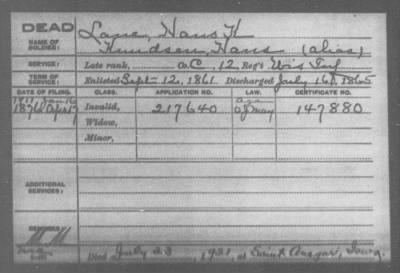 DEAD
NAME OF SOLDIER: Lane, Hans K
Knudsen, Hans (alias)
SERVICE: Late rank, C, 12, Reg't Wis Inf
TERM OF SERVICE: Enlisted Sept 12, 1861 Discharged July 16, 1865
DATE OF FILING. CLASS. APPLICATION NO. LAW. CERTIFICATE NO.
1876 Apr 17 Invalid, 217640 147880
Widow,
Minor,
ADDITIONAL SERVICES:
Died July 23, 1921, at Saint Ansgar, Iowa.